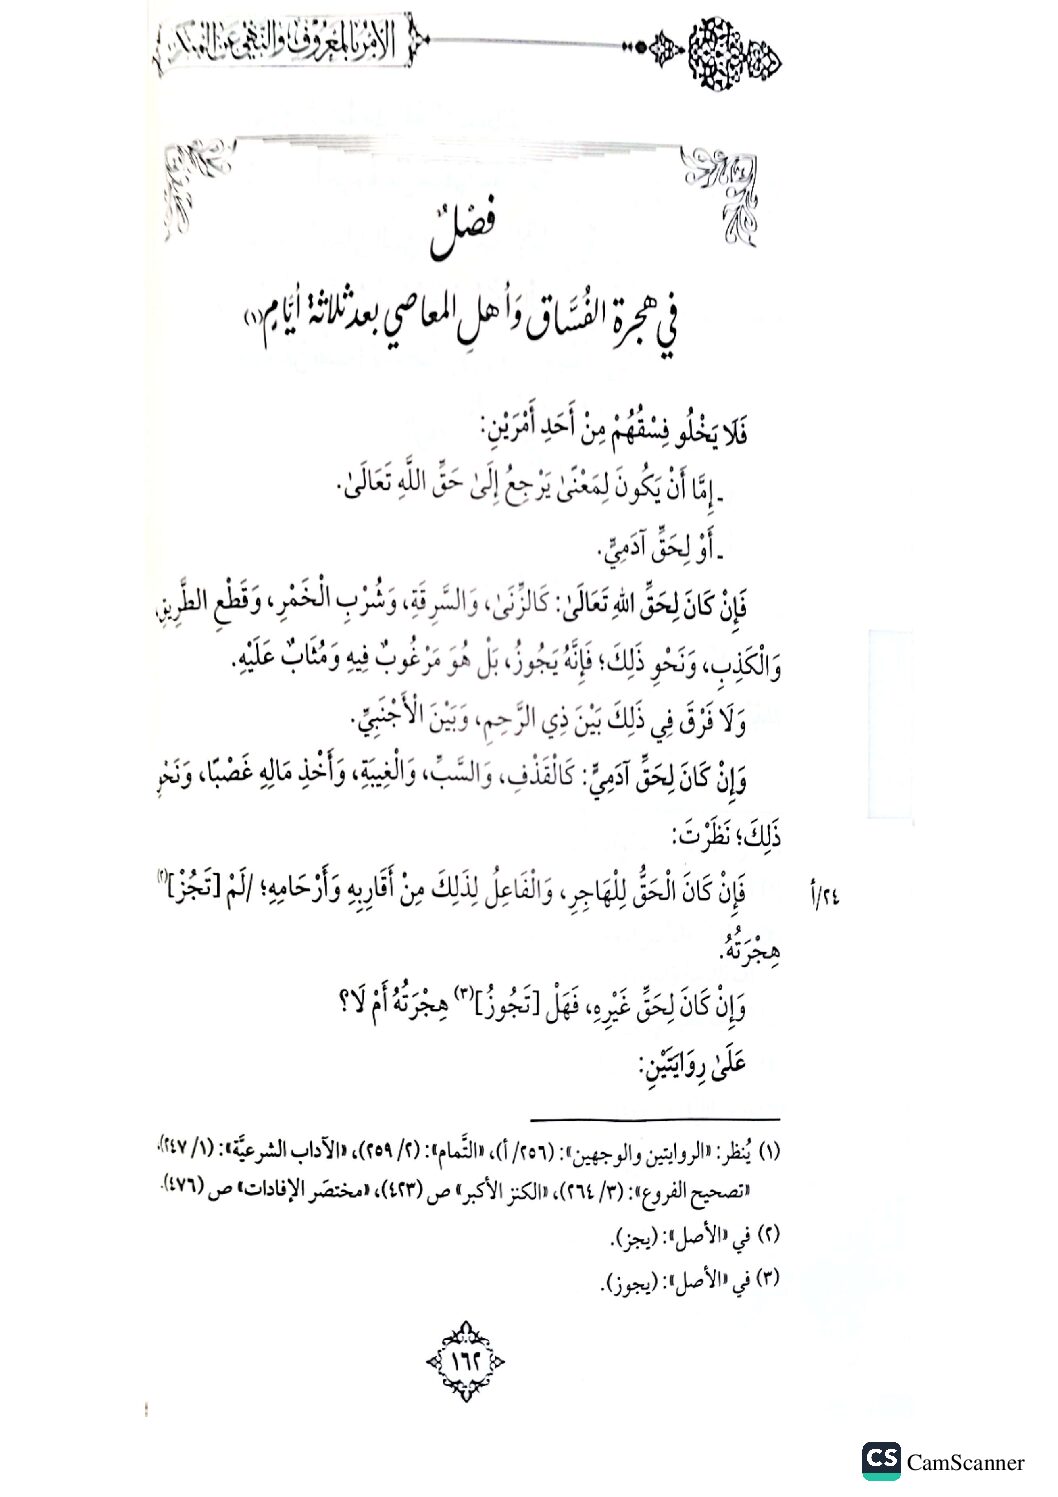 الأمر بالمعروف والنهي عن المنكر
فَصْلٌ
في هجرة الفُسَّاق وَأهلِ المعاصي بعد ثلاثة أيَّامٍ(١)
فَلَا يَخْلُو فِسْقُهُمْ مِنْ أَحَدِ أَمْرَيْنِ:
ـ إِمَّا أَنْ يَكُونَ لِمَعْنًى يَرْجِعُ إِلَىٰ حَقِّ اللَّهِ تَعَالَىٰ.
ـ أَوْ لِحَقِّ آدَمِيٍّ.
فَإِنْ كَانَ لِحَقِّ اللهِ تَعَالَىٰ: كَالزِّنَىٰ، وَالسَّرِقَةِ، وَشُرْبِ الْخَمْرِ، وَقَطْعِ الطَّرِيقِ،
وَالْكَذِبِ، وَنَحْوِ ذَلِكَ؛ فَإِنَّهُ يَجُوزُ، بَلْ هُوَ مَرْغُوبٌ فِيهِ وَمُثَابٌ عَلَيْهِ.
وَلَا فَرْقَ فِي ذَلِكَ بَيْنَ ذِي الرَّحِمِ، وَبَيْنَ الْأَجْنَبِيِّ.
وَإِنْ كَانَ لِحَقِّ آدَمِيٍّ: كَالْقَذْفِ، وَالسَّبِّ، وَالْغِيبَةِ، وَأَخْذِ مَالِهِ غَصْبًا، وَنَحْوِ
ذَلِكَ؛ نَظَرْتَ:
فَإِنْ كَانَ الْحَقُّ لِلْهَاجِرِ، وَالْفَاعِلُ لِذَلِكَ مِنْ أَقَارِبِهِ وَأَرْحَامِهِ؛ /لَمْ [تَجُزْ](٢)
٢٤/أ
هِجْرَتُهُ.
وَإِنْ كَانَ لِحَقِّ غَيْرِهِ، فَهَلْ [تَجُوزُ](٣) هِجْرَتُهُ أَمْ لَا؟
عَلَىٰ رِوَايَتَيْنِ:
(١) يُنظر: «الروايتين والوجهين»: (٢٥٦/ أ)، «التَّمام»: (٢/ ٢٥٩)، «الآداب الشرعيَّة»: (١/ ٢٤٧)،
«تصحيح الفروع»: (٣/ ٢٦٤)، «الكنز الأكبر» ص (٤٢٣)، «مختصَر الإفادات» ص (٤٧٦).
(٢) في «الأصل»: (يجز).
(٣) في «الأصل»: (يجوز).
١٦٢
CS CamScanner